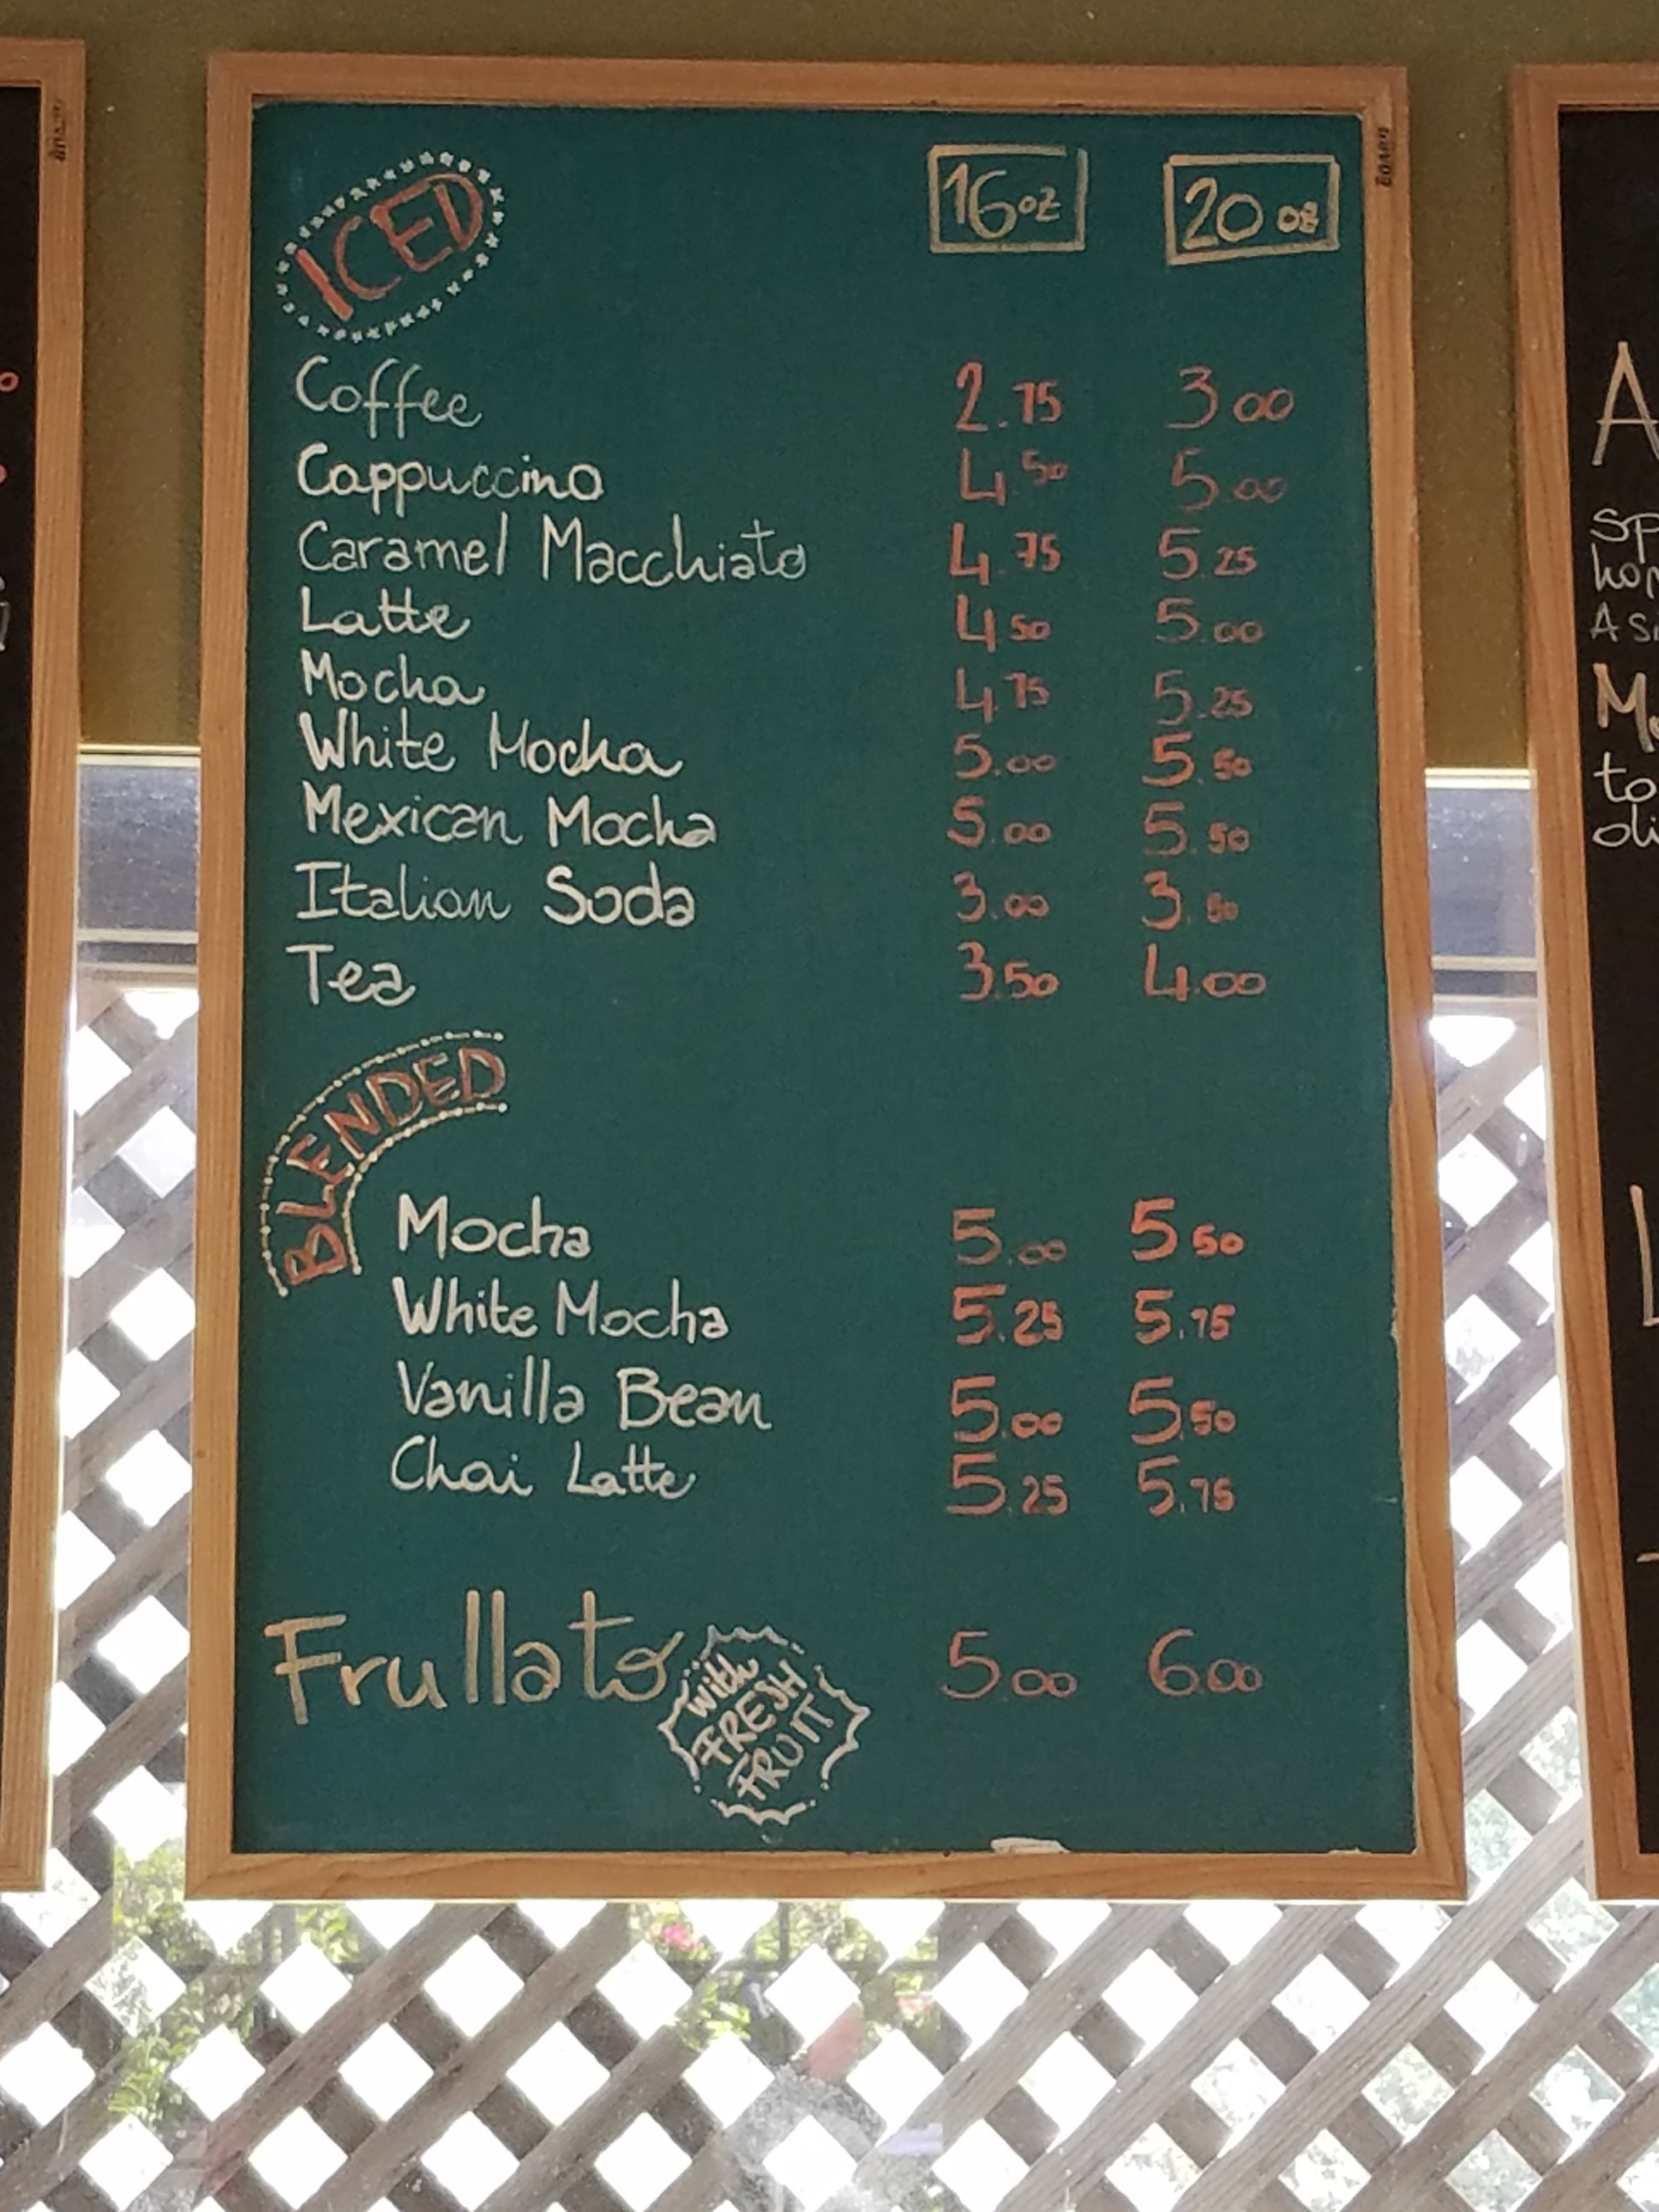 ICED 16oz 20oz
Coffee 2.75 3 00
Cappuccino 4.50 5.00
Caramel Macchiato 4.75 5.25
Latte 4 50 5.00
Mocha 4.75 5.25
White Mocha 5.00 5.50
Mexican Mocha 5.00 5.50
Italian Soda 3.00 3.50
Tea 3.50 4.00
BLENDED
Mocha 5.00 5 50
White Mocha 5.25 5.75
Vanilla Bean 5.00 5.50
Chai Latte 5.25 5.75
Frullato 5 00 6.00
with
FRESH
FRUIT